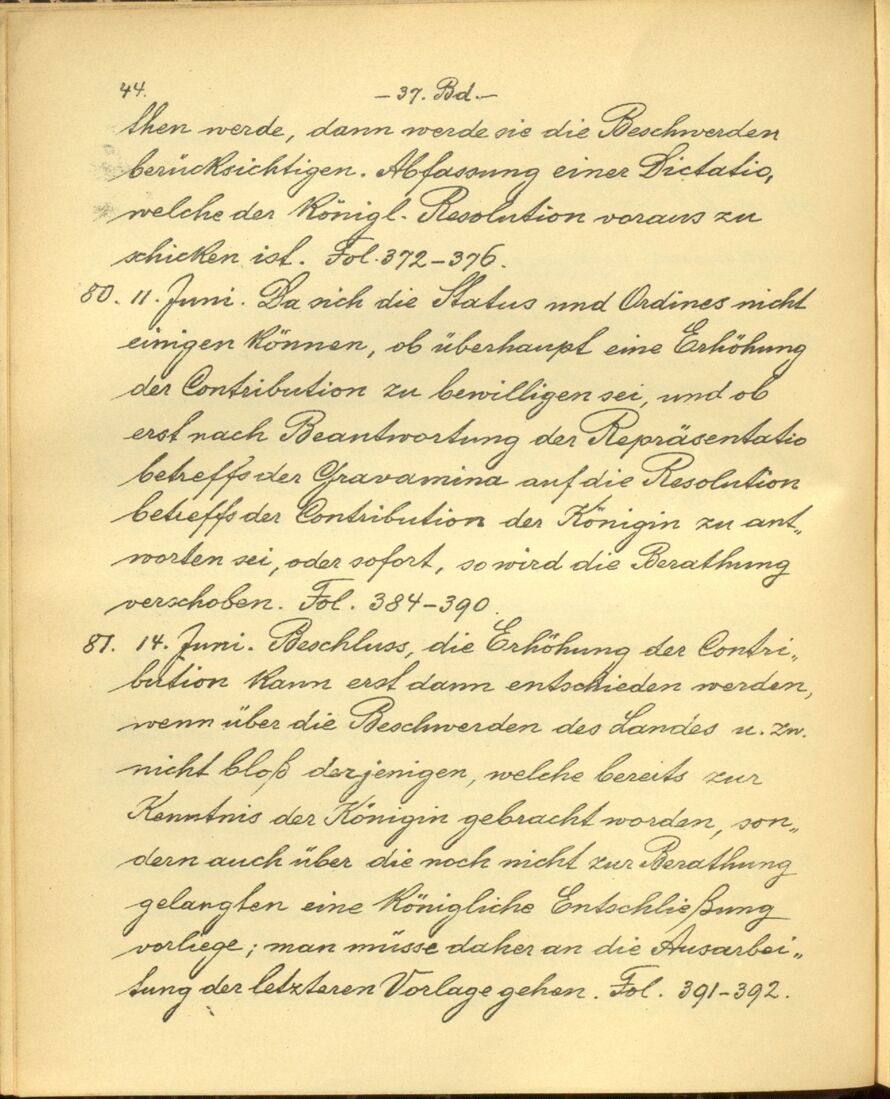 44.
- 37. Bd. -
then werde, dann werde sie die Beschwerden
berücksichtigen. Abfassung einer Dictatio,
welche der Königl. Resolution voraus zu
schicken ist. Fol. 372-376.
80. 11. Juni. Da sich die Status und Ordines nicht
einigen können, ob überhaupt eine Erhöhung
der Contribution zu bewilligen sei, und ob
erst nach Beantwortung der Repräsentatio
betreffs der Gravamina auf die Resolution
betreffs der Contribution der Königin zu ant„
worten sei, oder sofort, so wird die Berathung
verschoben. Fol. 384-390.
81. 14. Juni. Beschluss, die Erhöhung der Contri„
bution kann erst dann entschieden werden,
wenn über die Beschwerden des Landes u. zw.
nicht bloß derjenigen, welche bereits zur
Kenntnis der Königin gebracht worden, son„
dern auch über die noch nicht zur Berathung
gelangten eine Königliche Entschließung
vorliege; man müsse daher an die Ausarbei„
tung der letzteren Vorlage gehen. Fol. 391-392.